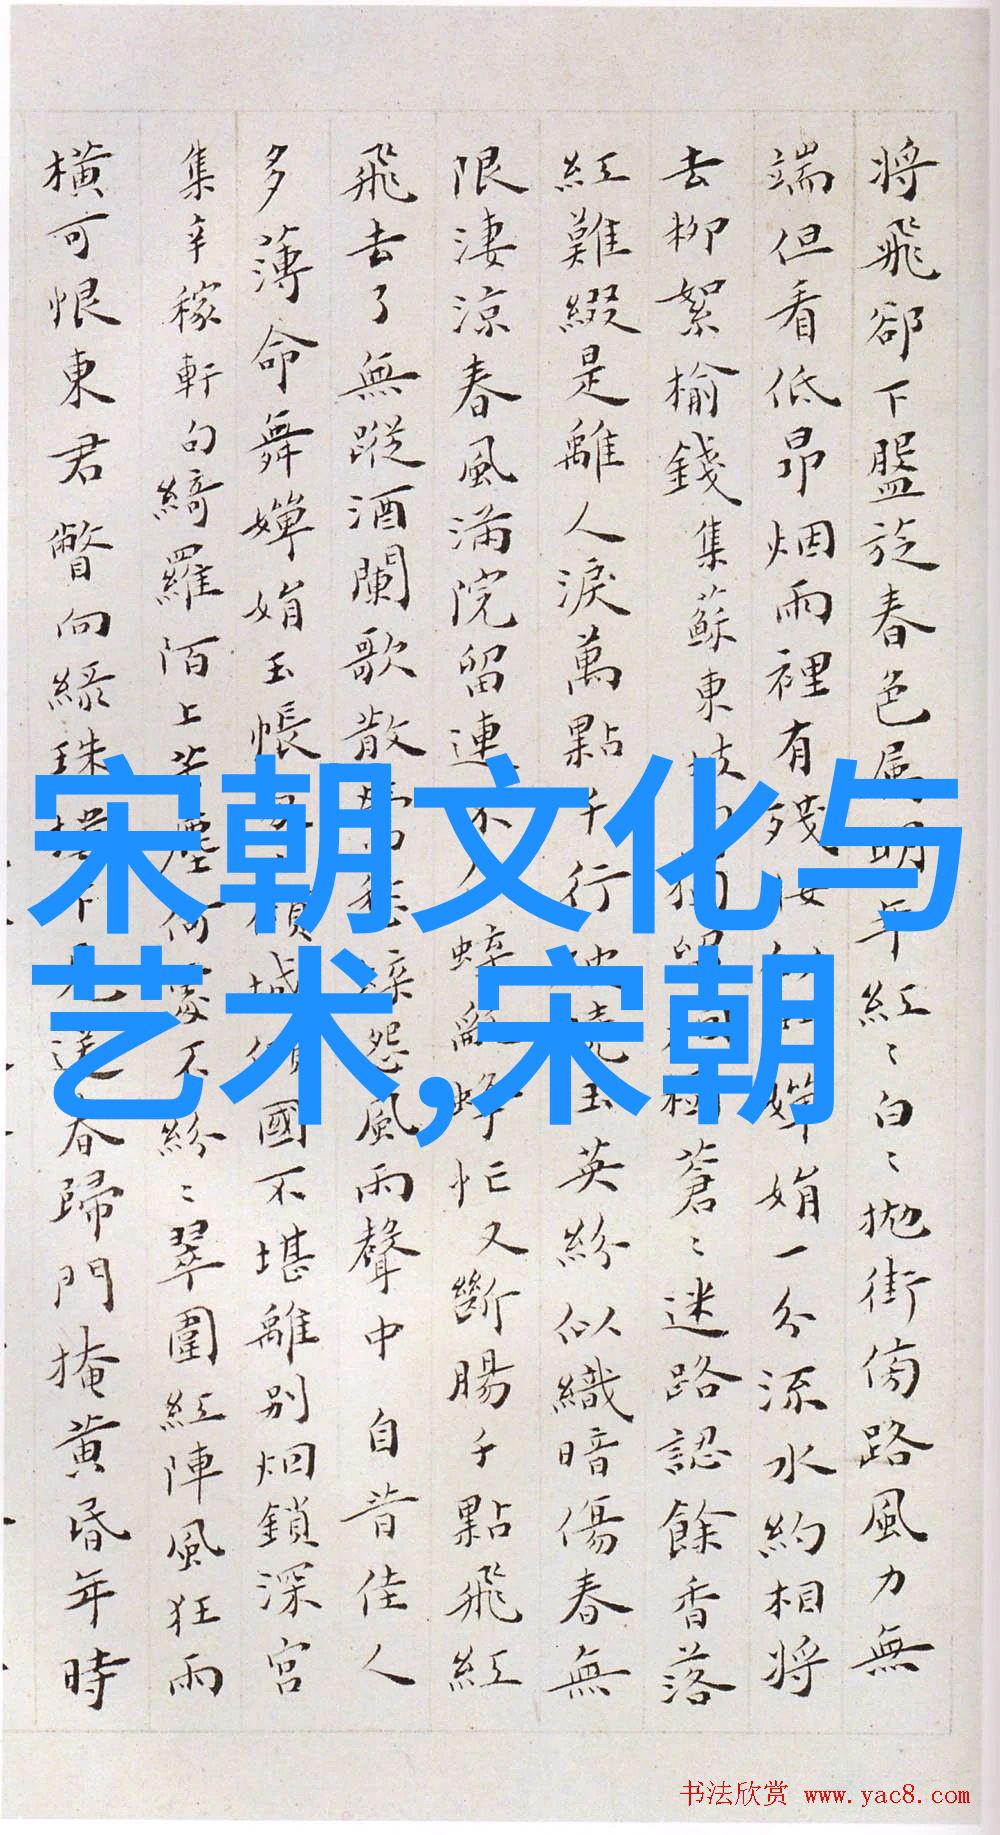 將飛卻下盤旋春色屬明年紅〻白〻拋街傍路風力無
端但看低昂烟雨裡有殘妝似嬋娟一分流水約相將
去柳絮榆錢集蘇東坡句蒼〻迷路認餘香落
紅難綴是離人淚萬點千行破曉玉英紛似織暗傷春無
限淒涼春風滿院留連不蜂忙又斷腸千點飛紅
飛去了無蹤酒闌歌散怨風雨聲中 自昔佳人
多薄命舞嬋娟玉帳傾城傾國不堪離別烟鎖深宮
集辛稼軒句綺羅陌上芳塵何處不紛〻翠圍紅陣風狂雨
橫可恨東君瞥向綠珠樓下送春歸門掩黃昏年時
宋朝文化与
艺术,宋朝
书法欣赏 www.yac8.com